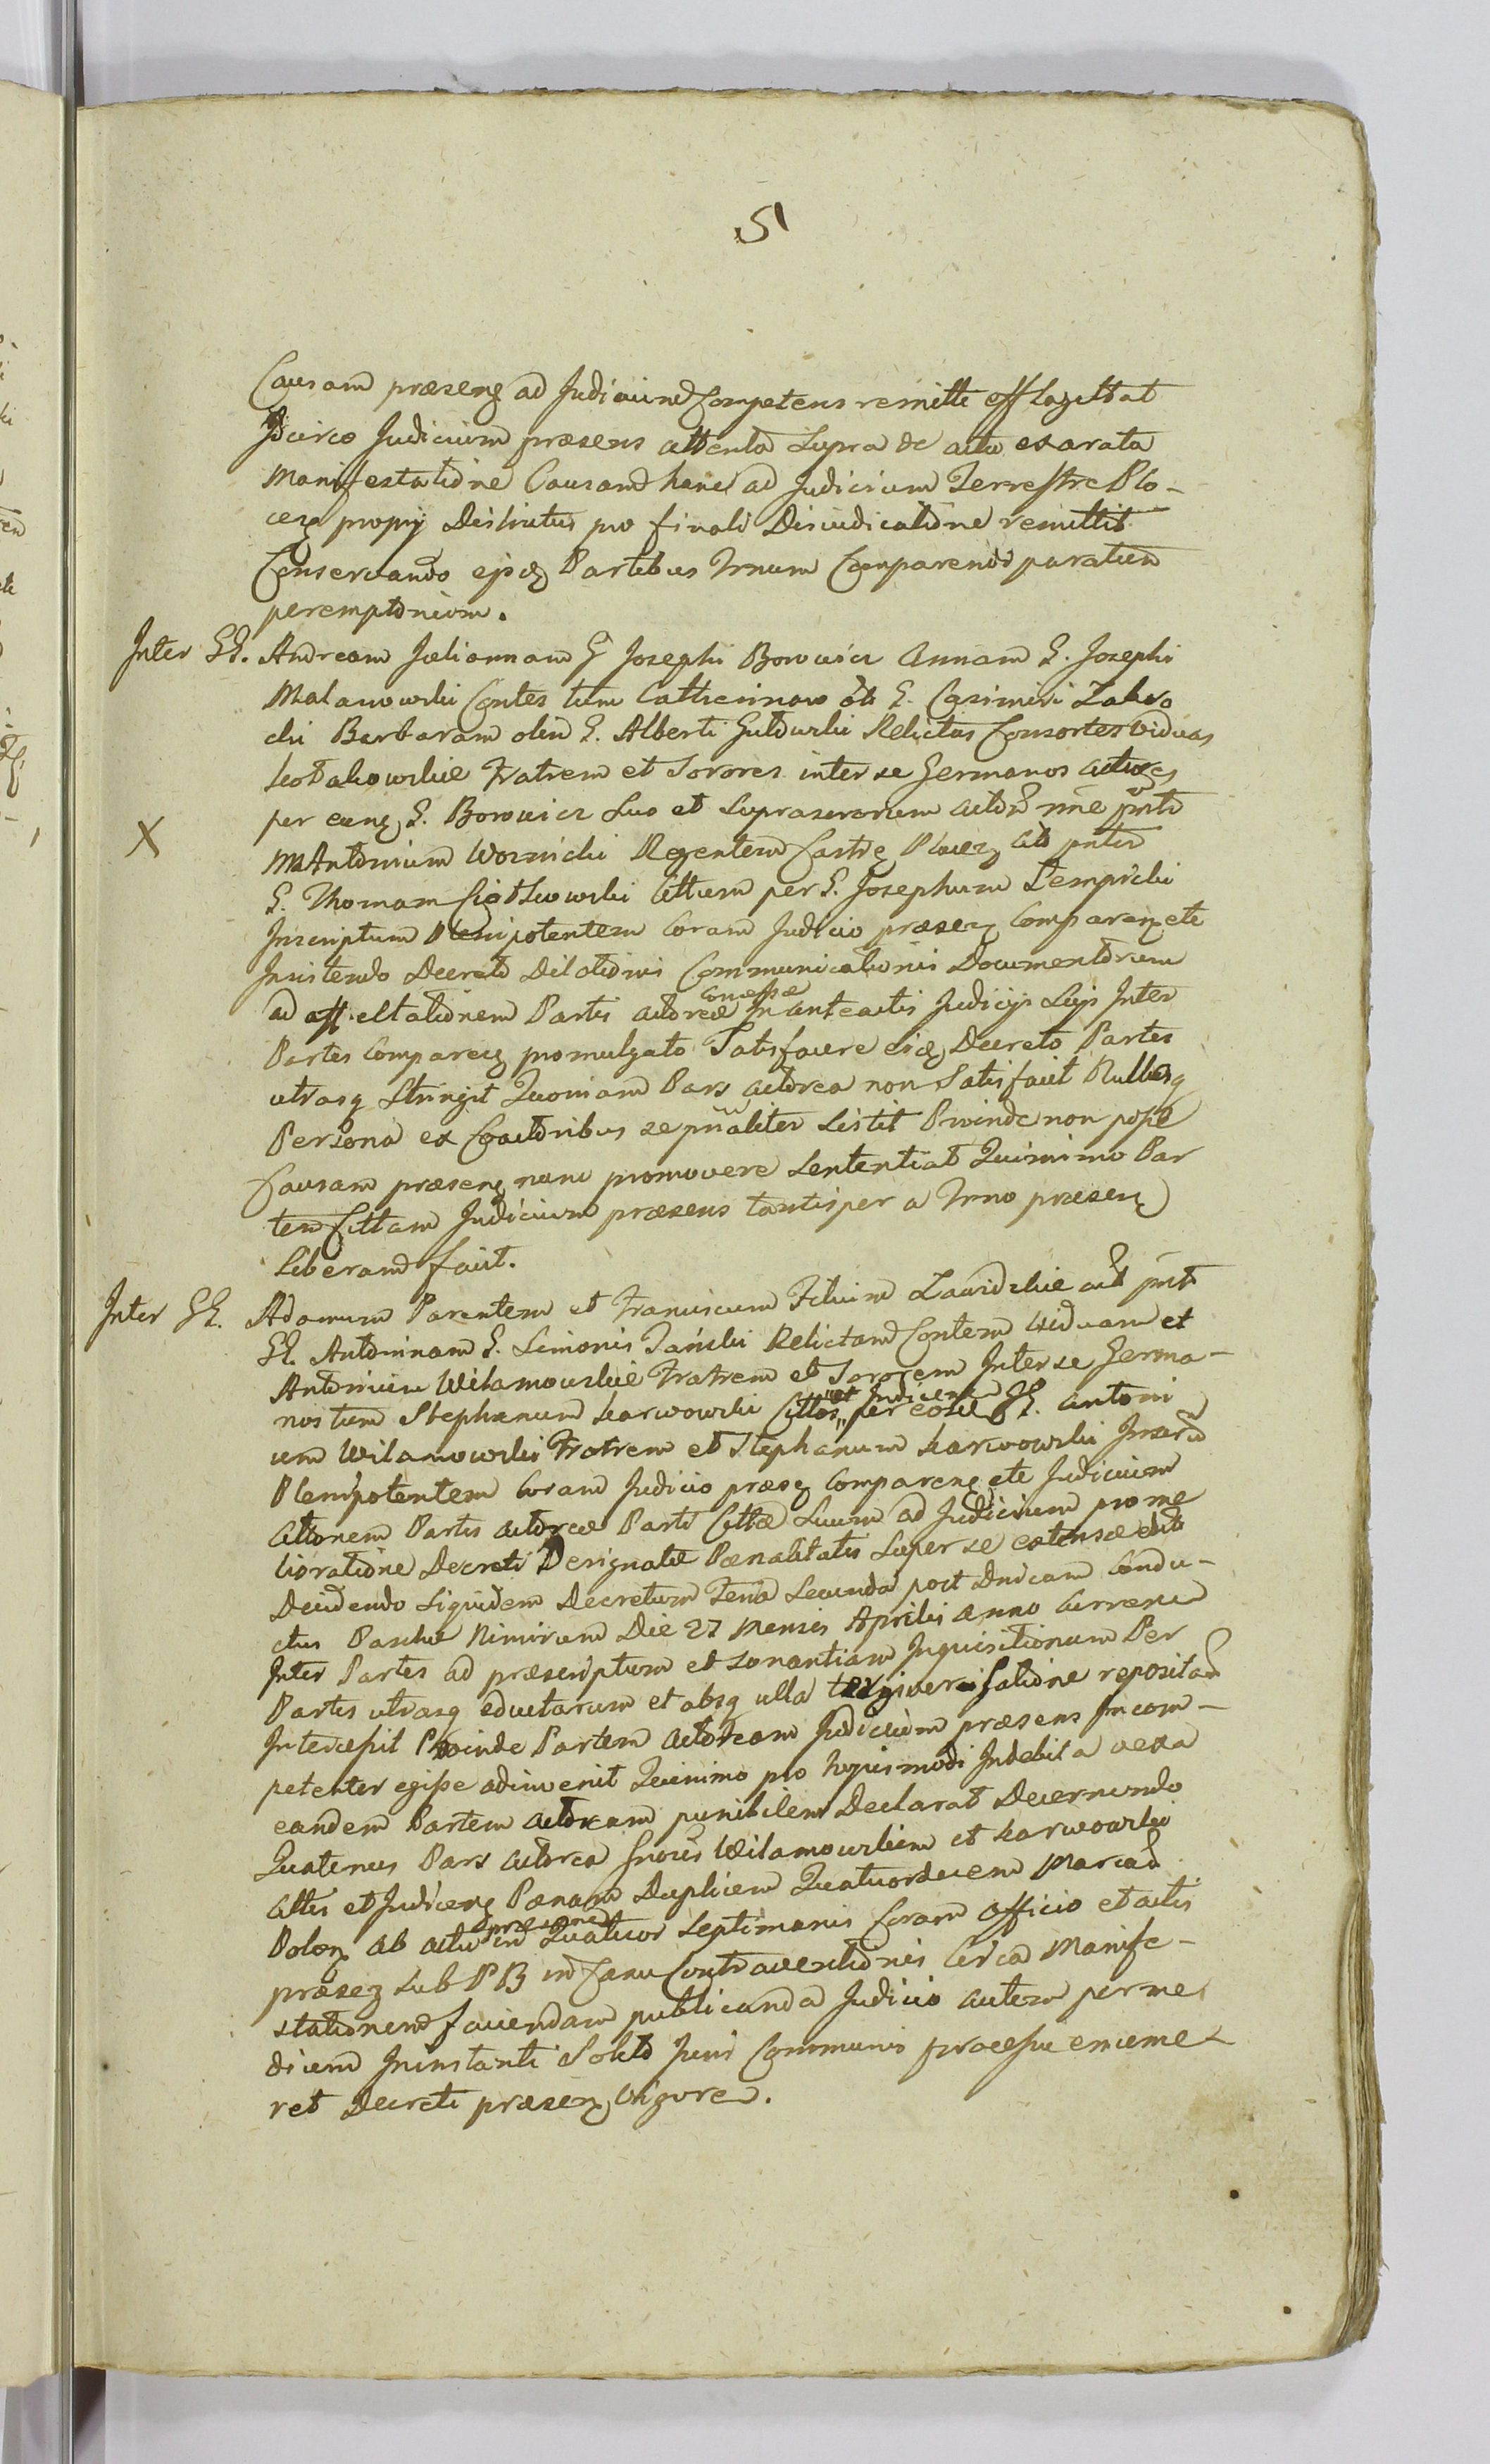 51
Causam præsenz ad Judicium Competens remitti efflagittat
Idcirco Judicium præsens attenta supra de actu exarata
Manifestatione Causam hanc ad Judicium Terrestre Plo-
cen propij Districtus pro finali Disiudicatione remittit
Conservando ejsdz Partibus Trnum Comparendi paratum
peremptorium.
Inter GG. Andream Juliannam G Josephi Borwicz Annam G. Josephi
Malanowski Contes tum Catherinam G. Casimiri Zakro
cki Barbaram olim G. Alberti Gutowski Relictas Consortes viduas
Kossakowskie Fratrem et Sorores inter se Germanos Actores
per eunz G. Borwicz suo et suprasororum
X
M Antonium Woznicki Regentem Castrz Plocenz
G. Thomam Ciotkowski Cittum per G. Josephum Lempicki
Inscriptum Plenipotentem Coram Judicio præsenz Comparenz etc
Insistendo Decreto Dilationis Communicationis Documentorum
ad affectationem Partis Actoreæ concessæ In anteactis Judicijs suis Inter
Partes Comparenz promulgato Satisfacere eidz Decreto Partes
utrasq stringit Quoniam Pars Actorea non Satisfacit Nullasq
Persona ex Coactoribus se pnaliter sistit Proinde non posse
Causam præsenz nunc promovere sententiat Quinimo Par
tem Cittam Judicium præsens tantisper a Trno præsenz
liberam facit.
Inter GG. Adamum Parentem et Franciscum Filium Zawidzkie
GG. Antoninam G. Simonis Tański Relictam Contem viduam et
Antonium Wilamowskie Fratrem et Sororem Inter se Germa-
nos tum Stephanum Karwowski Cittos et Judicenz per eosd GG. Antoni
um Wilamowski Fratrem et Stephanum Karwowski
Plenipotentem Coram Judicio præsz Comparenz etc Judicium
Attonem Partis Actoreæ Parti Cittæ suum ad Judicium pro me
lioratione Decreti Designatæ Pænalitatis super se extensæ
Decidendo siquidem Decretum Feria secunda post Dnicam Condu-
ctus Paschæ Nimirum Die 27 Mensis Aprilis Anno Curren
Inter Partes ad præscriptum et sonantiam Inquisitionum Per
Partes utrasq eductarum et absq ulla tergiversatione repositam
Intercessit Proinde Partem Actoream Judicium præsens Incom-
petenter egisse adinvenit Quinimo pro hujusmodi Indebita vexa
eandem Partem Actoream punibilem Declarat Decernendo
Quatenus Pars Actorea Wilamowskiem et Karwowski
Attis et Judicenz Pœnam Duplicem Quatuordecem Marcar
Polonz ab actu præsenz in Quatuor Septimanis Coram Officio et actis
præsenz sub PB in Casu Contraventionis Circa Manife-
stationem faciendam publicanda Judicio autem per me
dium Ininstanti Solito Juris Communis processu enume
ret Decreti præsenz vigore.